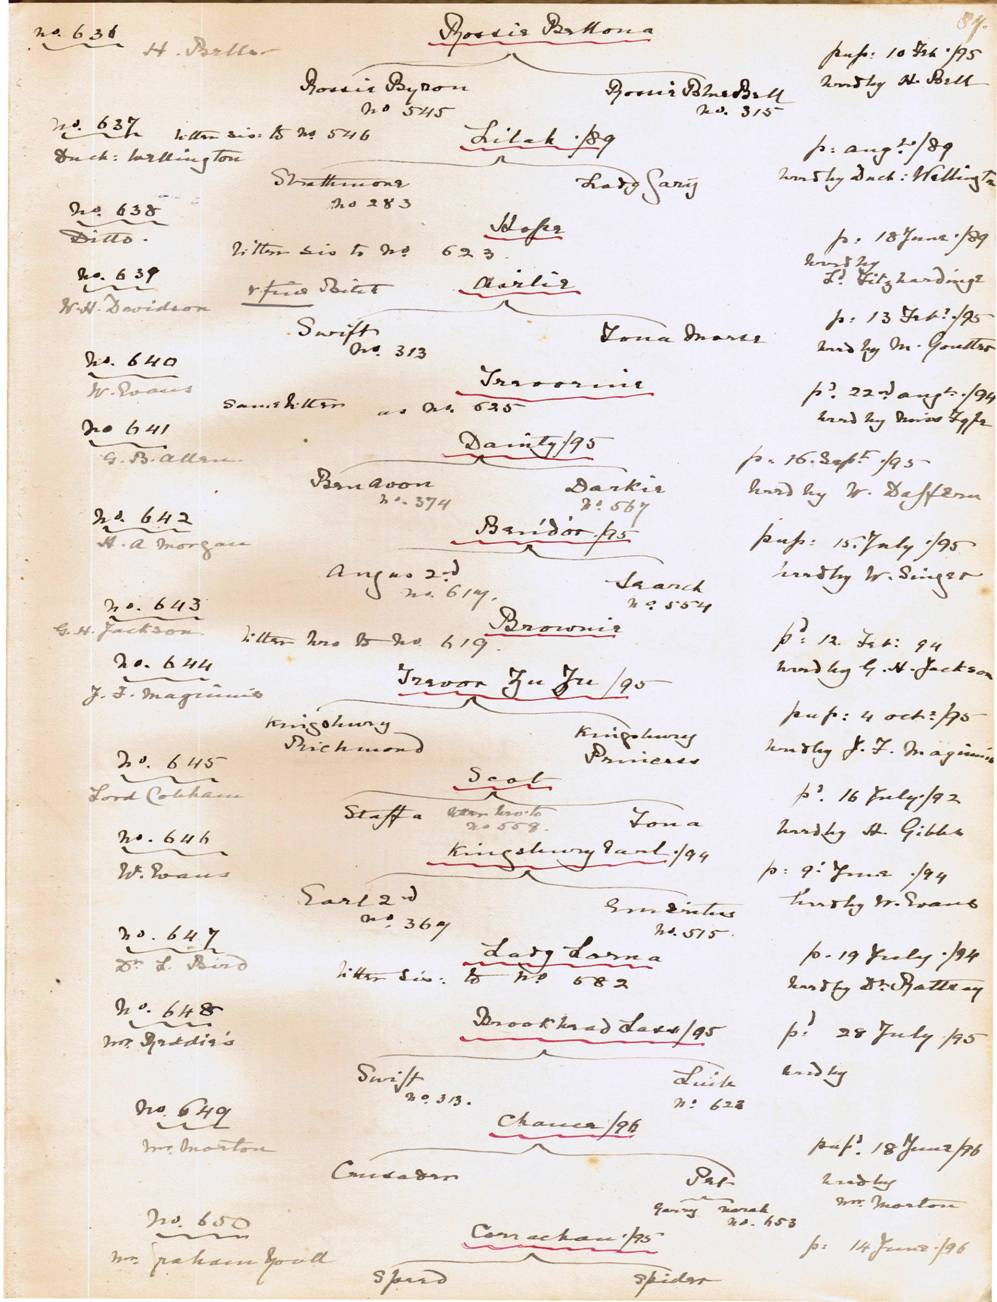 84.
No. 636 Rossie Bettona pup: 10 Feb /95
H. Bell bred by H. Bell
Rossie Byron Rossie Blue Bell
No 545 No. 315
No. 637 litter sis: to No 546 Lilah /89 p: augt /89
Duch: Wellington bred by Duch: Wellington
Strathmore Lady Gary
No 283
No. 638 Hope p. 18 June /89
Ditto. litter sis to No 623. bred by
Ld Fitzhardinge
No. 639 Airlie
W. H. Davidson p: 13 Feb: /95
Swift Iona Morse bred by M. Goutter
No. 313
No. 640 Trevornie pd. 22nd augt. /94
W. Evans same litter as No. 625 bred by Miss Fyfe
No 641 Dainty /95 p. 16. Sept /95
G. B. Allen Benavon Darkie bred by W. Daffern
No. 374 No. 567
No. 642 Ben'd'or /95 pup: 15. July /95
H. A Morgan Angus 2nd Search bred by W. Singer
No. 617. No. 554
No. 643 Brownie pd: 12 Feb: 94
G. H. Jackson litter bro to No. 619. bred by G. H. Jackson
No. 644 Trevor Zu Zu /95
J. F. Maginnis pup: 4 oct: /95
Kingsbury Kingsbury
Richmond Princess bred by J. F. Maginnis
No. 645 Scot pd. 16 July /92
Lord Cobham Staffa litter bro to Iona bred by H. Gibbs
No 559.
No. 646 Kingsbury Earl /94 p: 9: June /94
W. Evans Earl 2nd bred by W. Evans
No. 369 No. 515.
No. 647 Lady Lorna p. 19 July /94
Dr. L. Bird litter sis: to No 682 bred by Dr. Rattray
No. 648 Brookhead Lass /95 pd 28 July /95
Mr. Reddie's Swift Luik bred by
No. 313. No. 623
No. 649 Chance /96 pup. 18 June /96
Mr. Morton Crusader Pat bred by
Garry Norah Mr. Morton
No. 653
No. 650 Corrachan /95 p: 14 June /96
Speed Spider